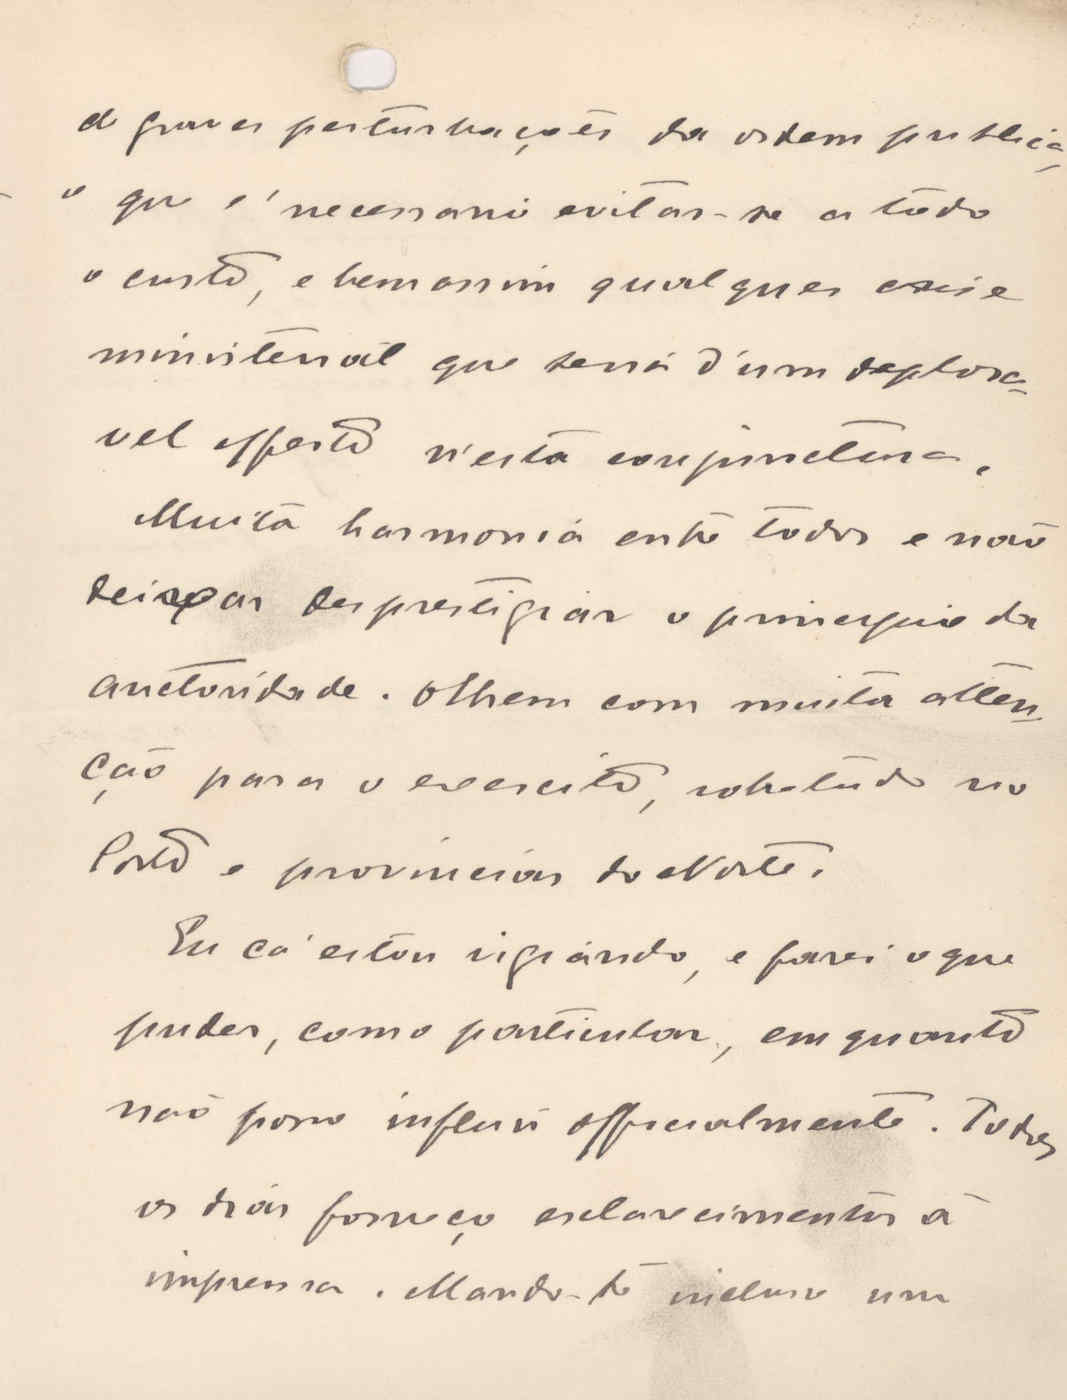 de graves perturbações da ordem publica,
o que é necessario evitar-se a todo
o custo, e bem assim qualquer crise
ministerial que seria d'um deplora-
vel effeito n'esta conjunctura.
Muita harmonia entre todos e não
deixar desprestigiar o principio da
auctoridade. Olhem com muita atten-
ção para o exercito, sobretudo no
Porto e provincias do Norte.
Eu cá estou vigiando, e farei o que
puder, como particular, emquanto
não posso influir officialmente. Todos
os dias forneço esclarecimentos á
imprensa. Mando-te incluso um